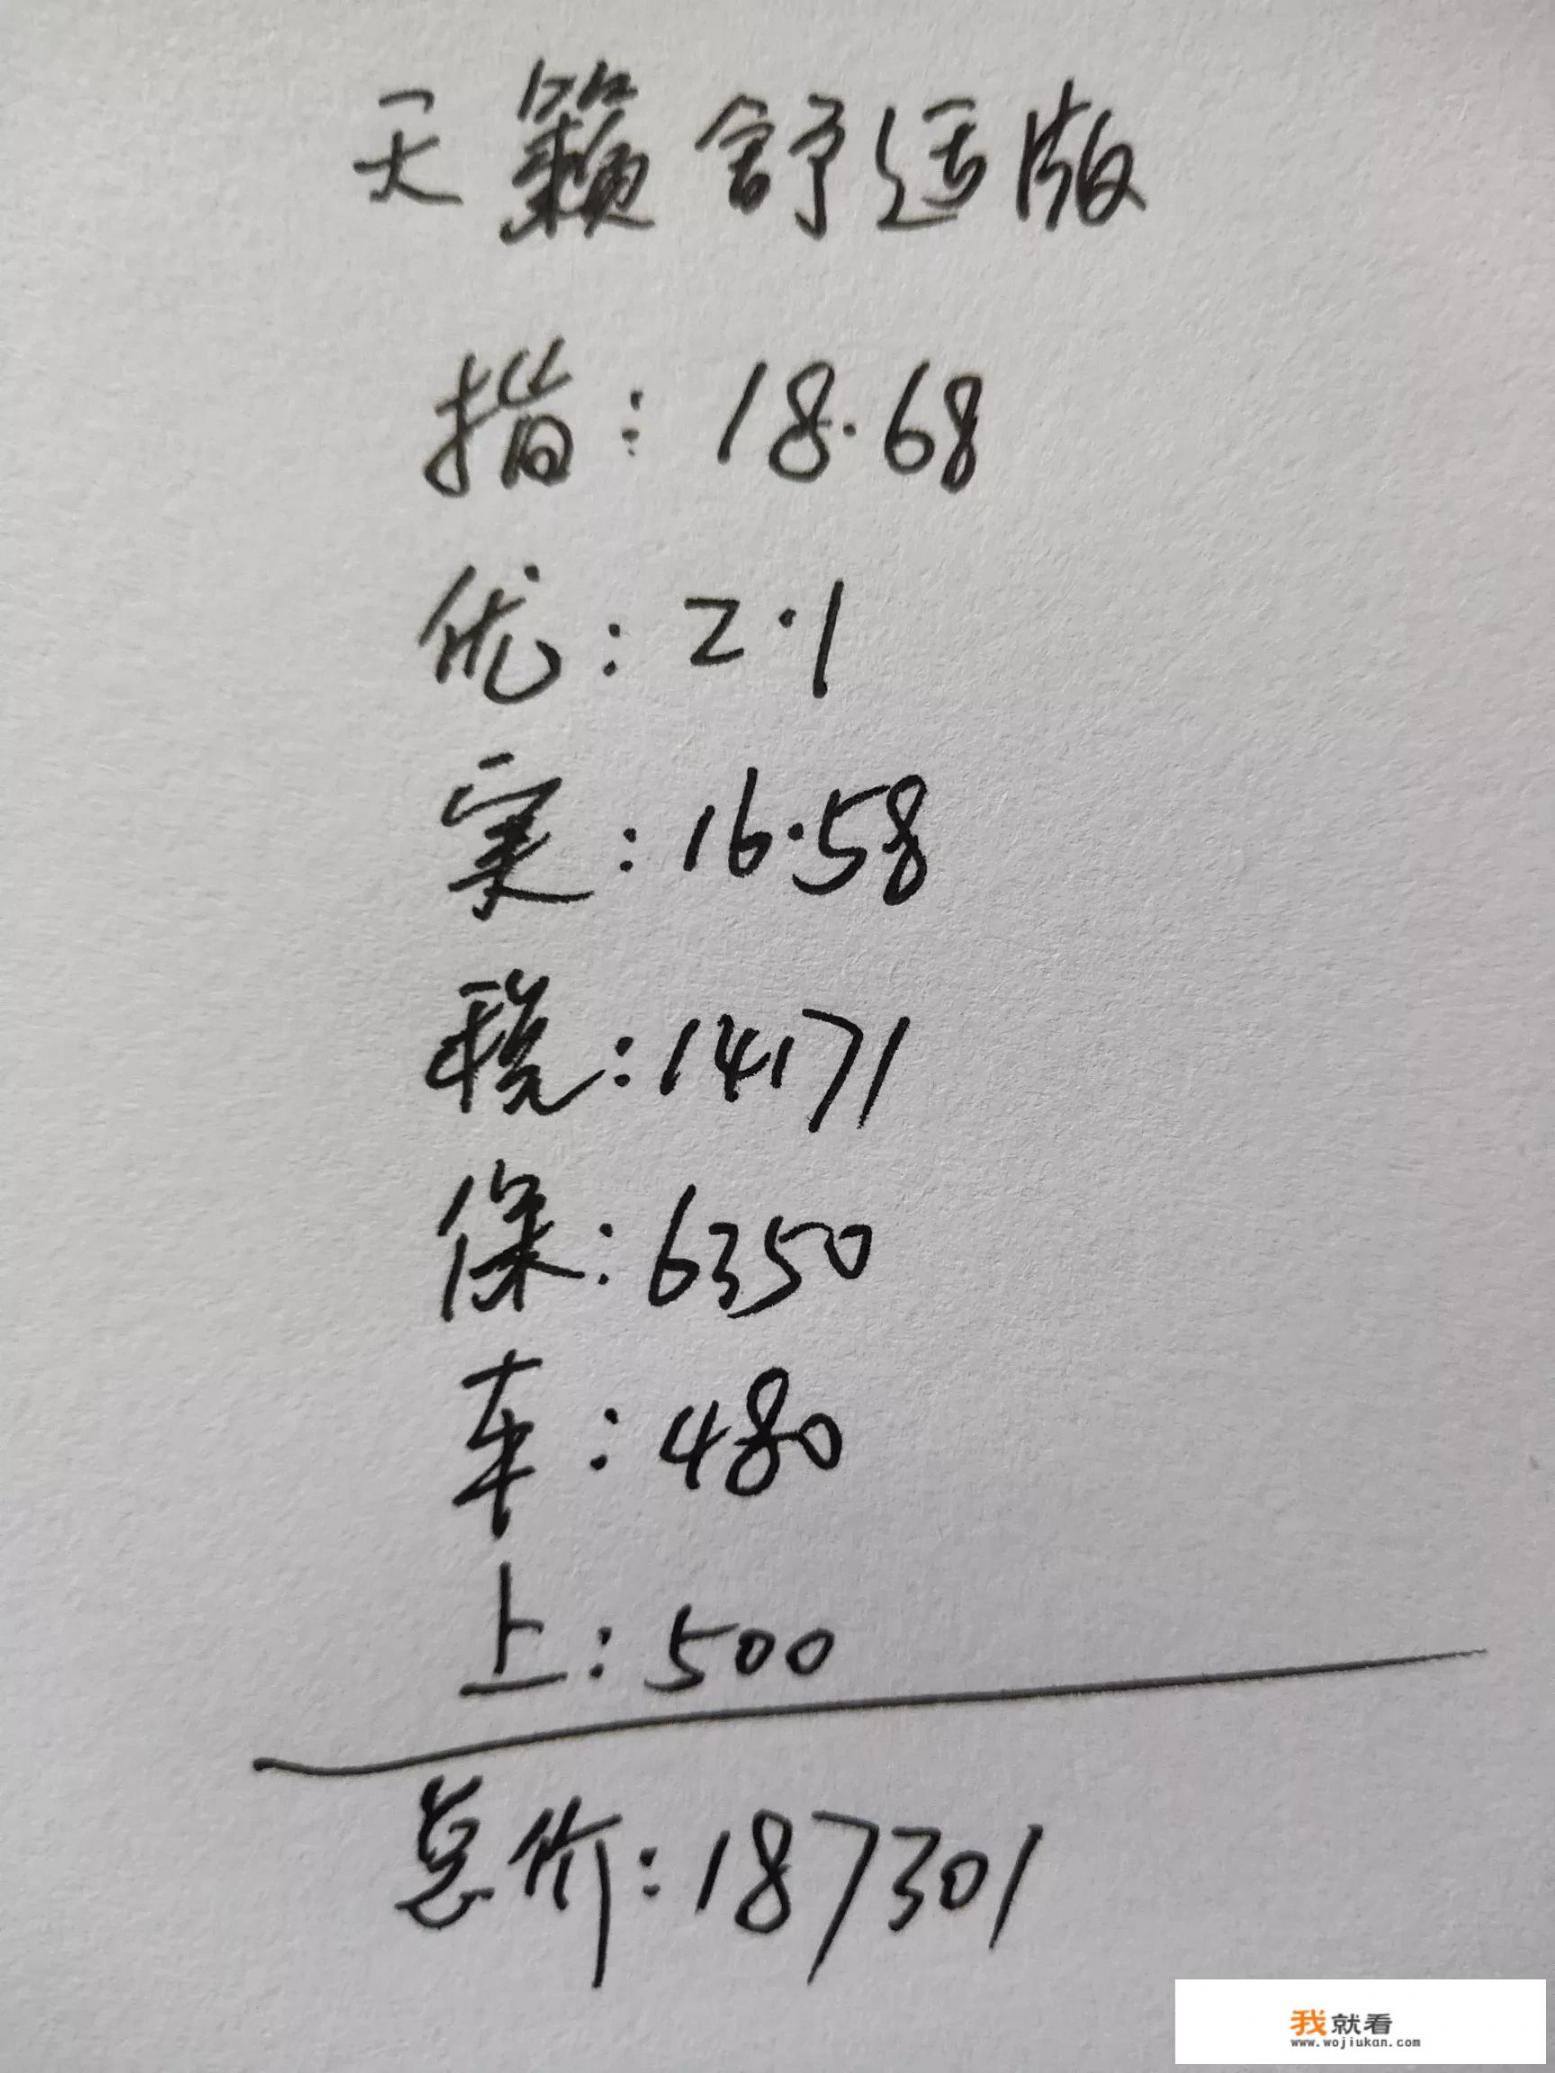 天籁舒适版
指：18.68
优：2.1
实：16.58
税：14171
保：6350
车：480
上：500
总价：187301
我就看
www.wojiukan.com